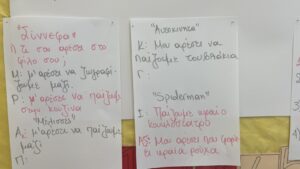 "Σύννεφα"
Τι σου αρέσει στο
φίλο σου;
Μ: μ' αρέσει να ζωγραφί-
ζουμε μαζί
Ρ: μ' αρέσει να παίζουμε
στην κουζίνα
"Μέλισσες"
Α: μ' αρέσει να παίζουμε
μαζί
Π:
"Αυτοκίνητα"
Κ: Μου αρέσει να
παίζουμε τουβλάκια
Γ:
"Spiderman"
Ι: Παίζουμε ωραίο
κουκλοθέατρο
ΑΣ: Μου αρέσει που φορά-
ει ωραία ρούχα